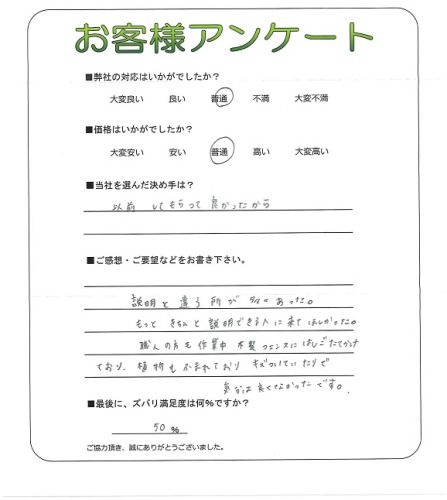 お客様アンケート
■弊社の対応はいかがでしたか？
大変良い 良い 普通 不満 大変不満
■価格はいかがでしたか？
大変安い 安い 普通 高い 大変高い
■当社を選んだ決め手は？
以前 してもらって 良かったから
■ご感想・ご要望などをお書き下さい。
説明と違う所が 多々あった。
もっと きちんと 説明できる人に 来て ほしかった。
職人の方も 作業中 木製フェンスに はしごたてかけ
ており、植物も ふまれており キズついていたりで
気分は良くなかったです。
■最後に、ズバリ満足度は何％ですか？
50 ％
ご協力頂き、誠にありがとうございました。